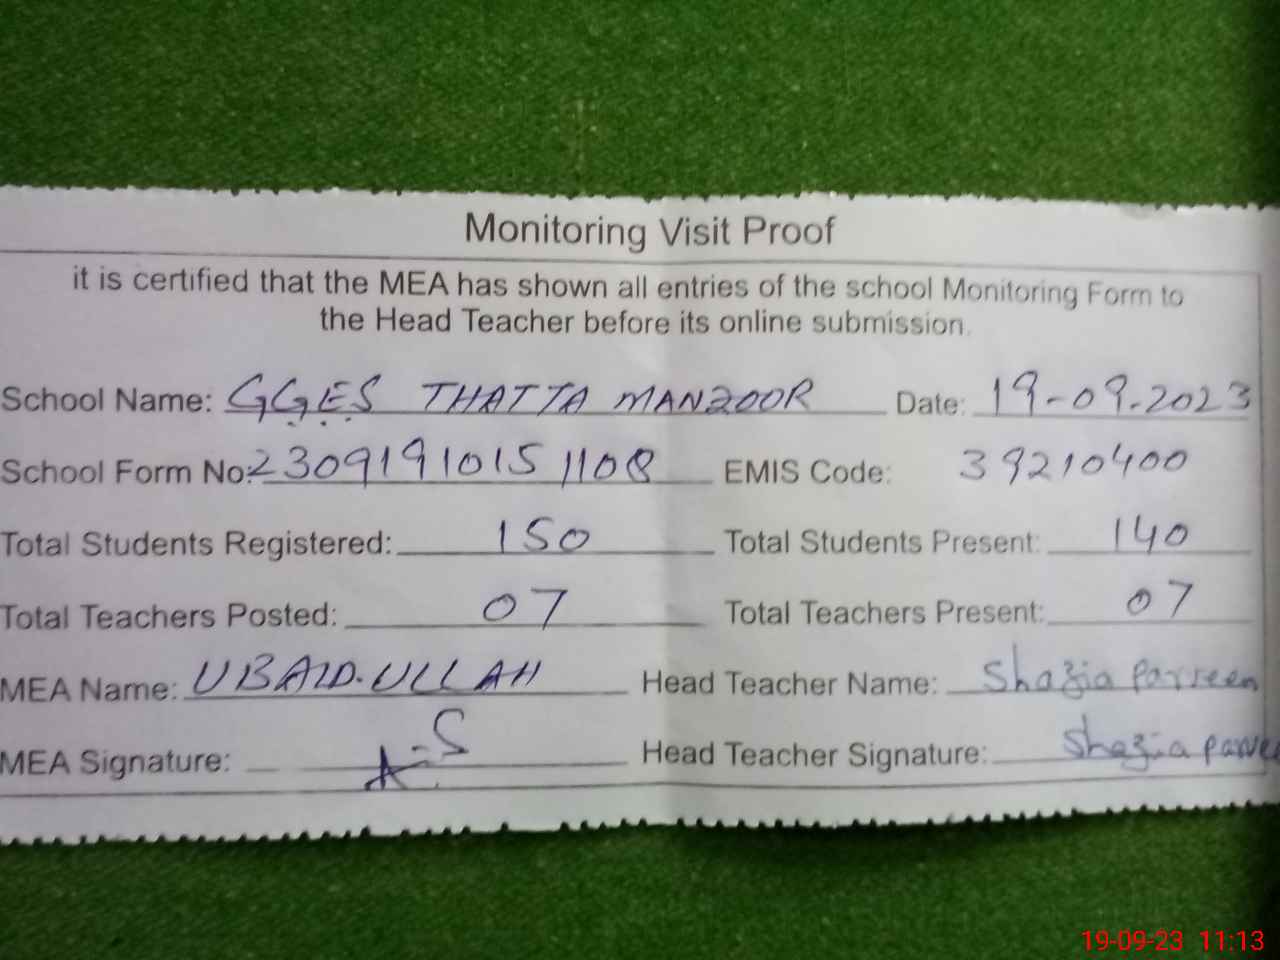 Monitoring Visit Proof
it is certified that the MEA has shown all entries of the school Monitoring Form to
the Head Teacher before its online submission.
School Name: GGES THATTA MANZOOR Date: 19-09-2023
School Form No: 2309191015 1108 EMIS Code: 39210400
Total Students Registered: 150 Total Students Present: 140
Total Teachers Posted: 07 Total Teachers Present: 07
MEA Name: UBAID-ULLAH Head Teacher Name: Shazia Parveen
MEA Signature: Head Teacher Signature: Shazia
19-09-23 11:13